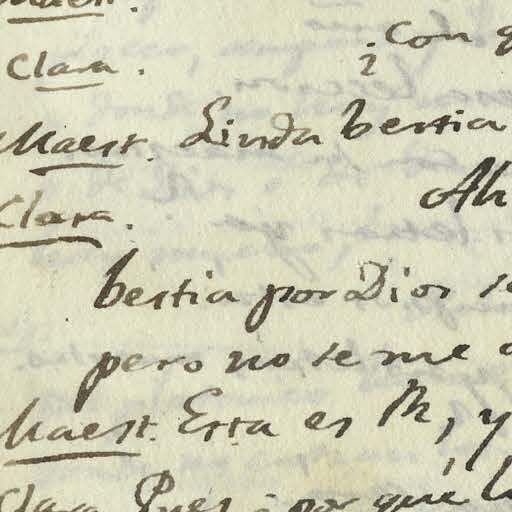 Maest.
¿Con
Clara.
Maest. Linda bestia
Clara. Ah
bestia por Dios
pero no se me
Maest. Esta es M, y
Clara Pues ¿por qué